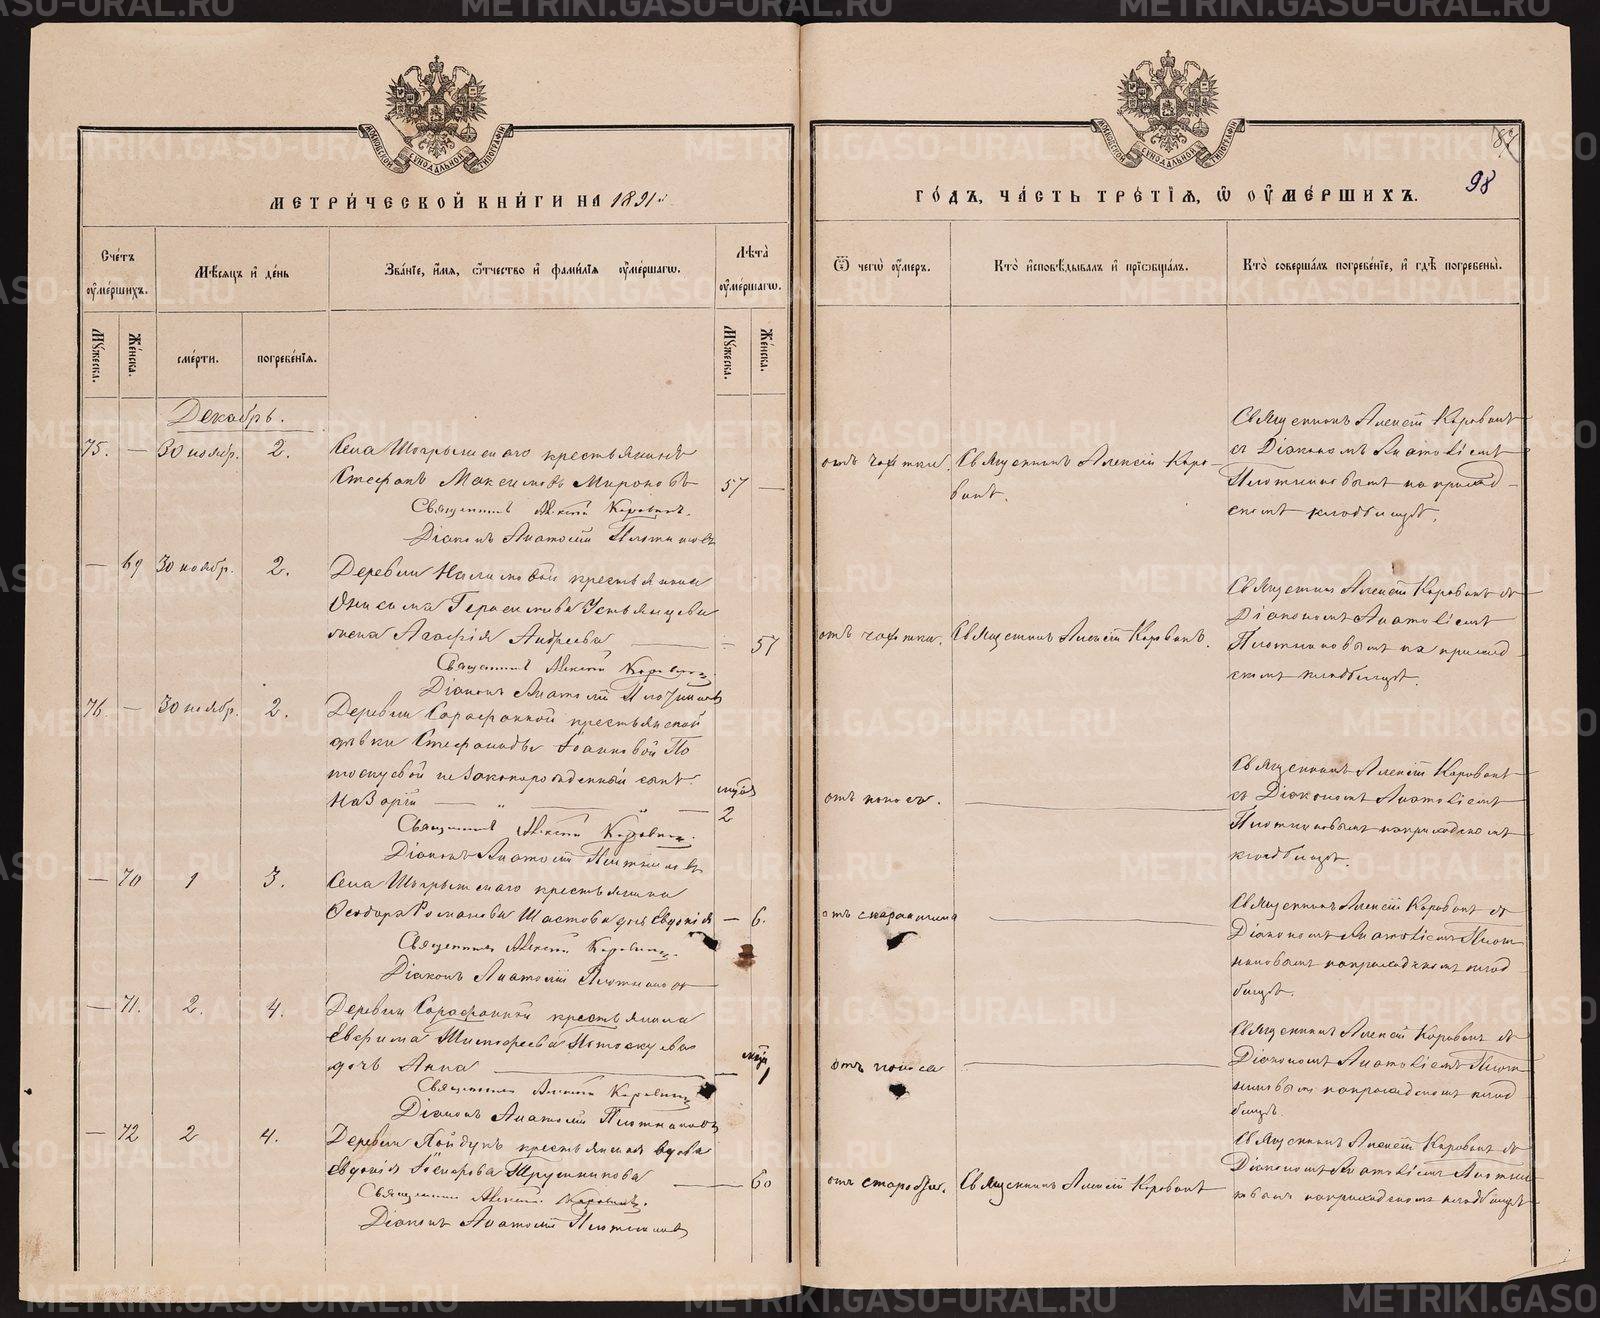 МЕТРИЧЕСКОЙ КНИГИ НА 1891й
Счетъ оумершихъ.
Мѣсяцъ и день
Званіе, имя, отчество и фамилія оумершагѡ.
Лѣта оумершагѡ.
Мужеска.
Женска.
смерти.
погребенія.
Мужеска.
Женска.
Декабрь.
75. — 30 ноябр. 2. Села крестьянинъ
Стефанъ Максимовъ Мироновъ 57 —
Священникъ Алексій Коровинъ.
Діаконъ Анатолій Плотниковъ
— 69 30 ноябр. 2. Деревни Налимовой крестьянина
Онисима Герасимова Устьянцева
жена Агафія Андреева — 57
Священникъ Алексій Коровинъ.
Діаконъ Анатолій Плотниковъ
76. — 30 ноябр. 2. Деревни Сарафанной крестьянской
дѣвки Стефаниды Іоанновой По
тоскуевой незаконорожденный сынъ
Назарій 2
Священникъ Алексій Коровинъ.
Діаконъ Анатолій Плотниковъ
— 70 1 3. Села крестьянина
Феодора Романова дочь Евдокія — 6.
Священникъ Алексій Коровинъ.
Діаконъ Анатолій Плотниковъ
— 71. 2. 4. Деревни Сарафанной крестьянина
Евфима Тимофеева Потоскуева
дочь Анна — 1
Священникъ Алексій Коровинъ
Діаконъ Анатолій Плотниковъ
— 72 2 4. Деревни крестьянская вдова
Евдокія Трушникова — 60
Священникъ Алексій Коровинъ.
Діаконъ Анатолій Плотниковъ
87
98
ГОДЪ, ЧАСТЬ ТРЕТІЯ, Ѡ ОУМЕРШИХЪ.
Ѿ чегѡ оумеръ.
Кто исповѣдывалъ и пріобщалъ.
Кто совершалъ погребеніе, и гдѣ погребены.
Священникъ Алексій Коровинъ
съ Діакономъ Анатоліемъ
отъ чахотки. Священникъ Алексій Коро-
винъ.
Плотниковымъ на приход-
скомъ кладбищѣ.
Священникъ Алексій Коровинъ съ
Діакономъ Анатоліемъ
отъ чахотки. Священникъ Алексій Коровинъ.
Плотниковымъ на приход
скомъ кладбищѣ.
Священникъ Алексій Коровинъ
отъ поноса.
съ Діакономъ Анатоліемъ
Плотниковымъ на приходскомъ
кладбищѣ.
Священникъ Алексій Коровинъ съ
отъ скарлатина
Діакономъ Анатоліемъ Плот
никовымъ на приходскомъ клад
бищѣ.
Священникъ Алексій Коровинъ съ
отъ поноса
Діакономъ Анатоліемъ Плот
никовымъ на приходскомъ клад
бищѣ
Священникъ Алексій Коровинъ съ
отъ старости. Священникъ Алексій Коровинъ
Діакономъ Анатоліемъ Плотни
ковымъ на приходскомъ кладбищѣ
METRIKI.GASO-URAL.RU